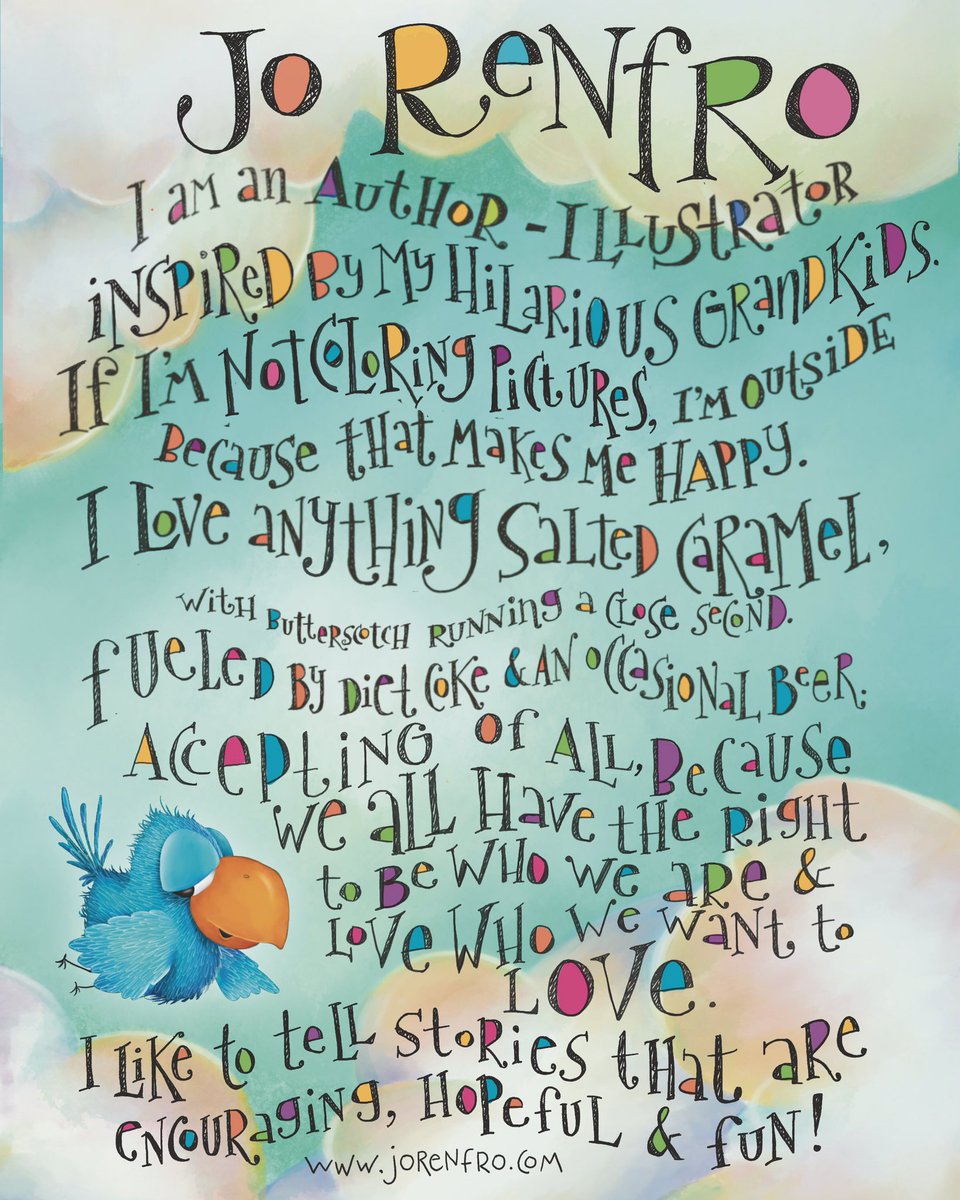 Jo Renfro
I am an Author - Illustrator
inspired by my hilarious grandkids.
If I'm not coloring pictures, I'm outside
because that makes me happy.
I love anything salted caramel,
with butterscotch running a close second.
fueled by Diet Coke & an occasional beer.
Accepting of all, because
we all have the right
to be who we are &
love who we want to
love.
I like to tell stories that are
encouraging, hopeful & fun!
www.jorenfro.com